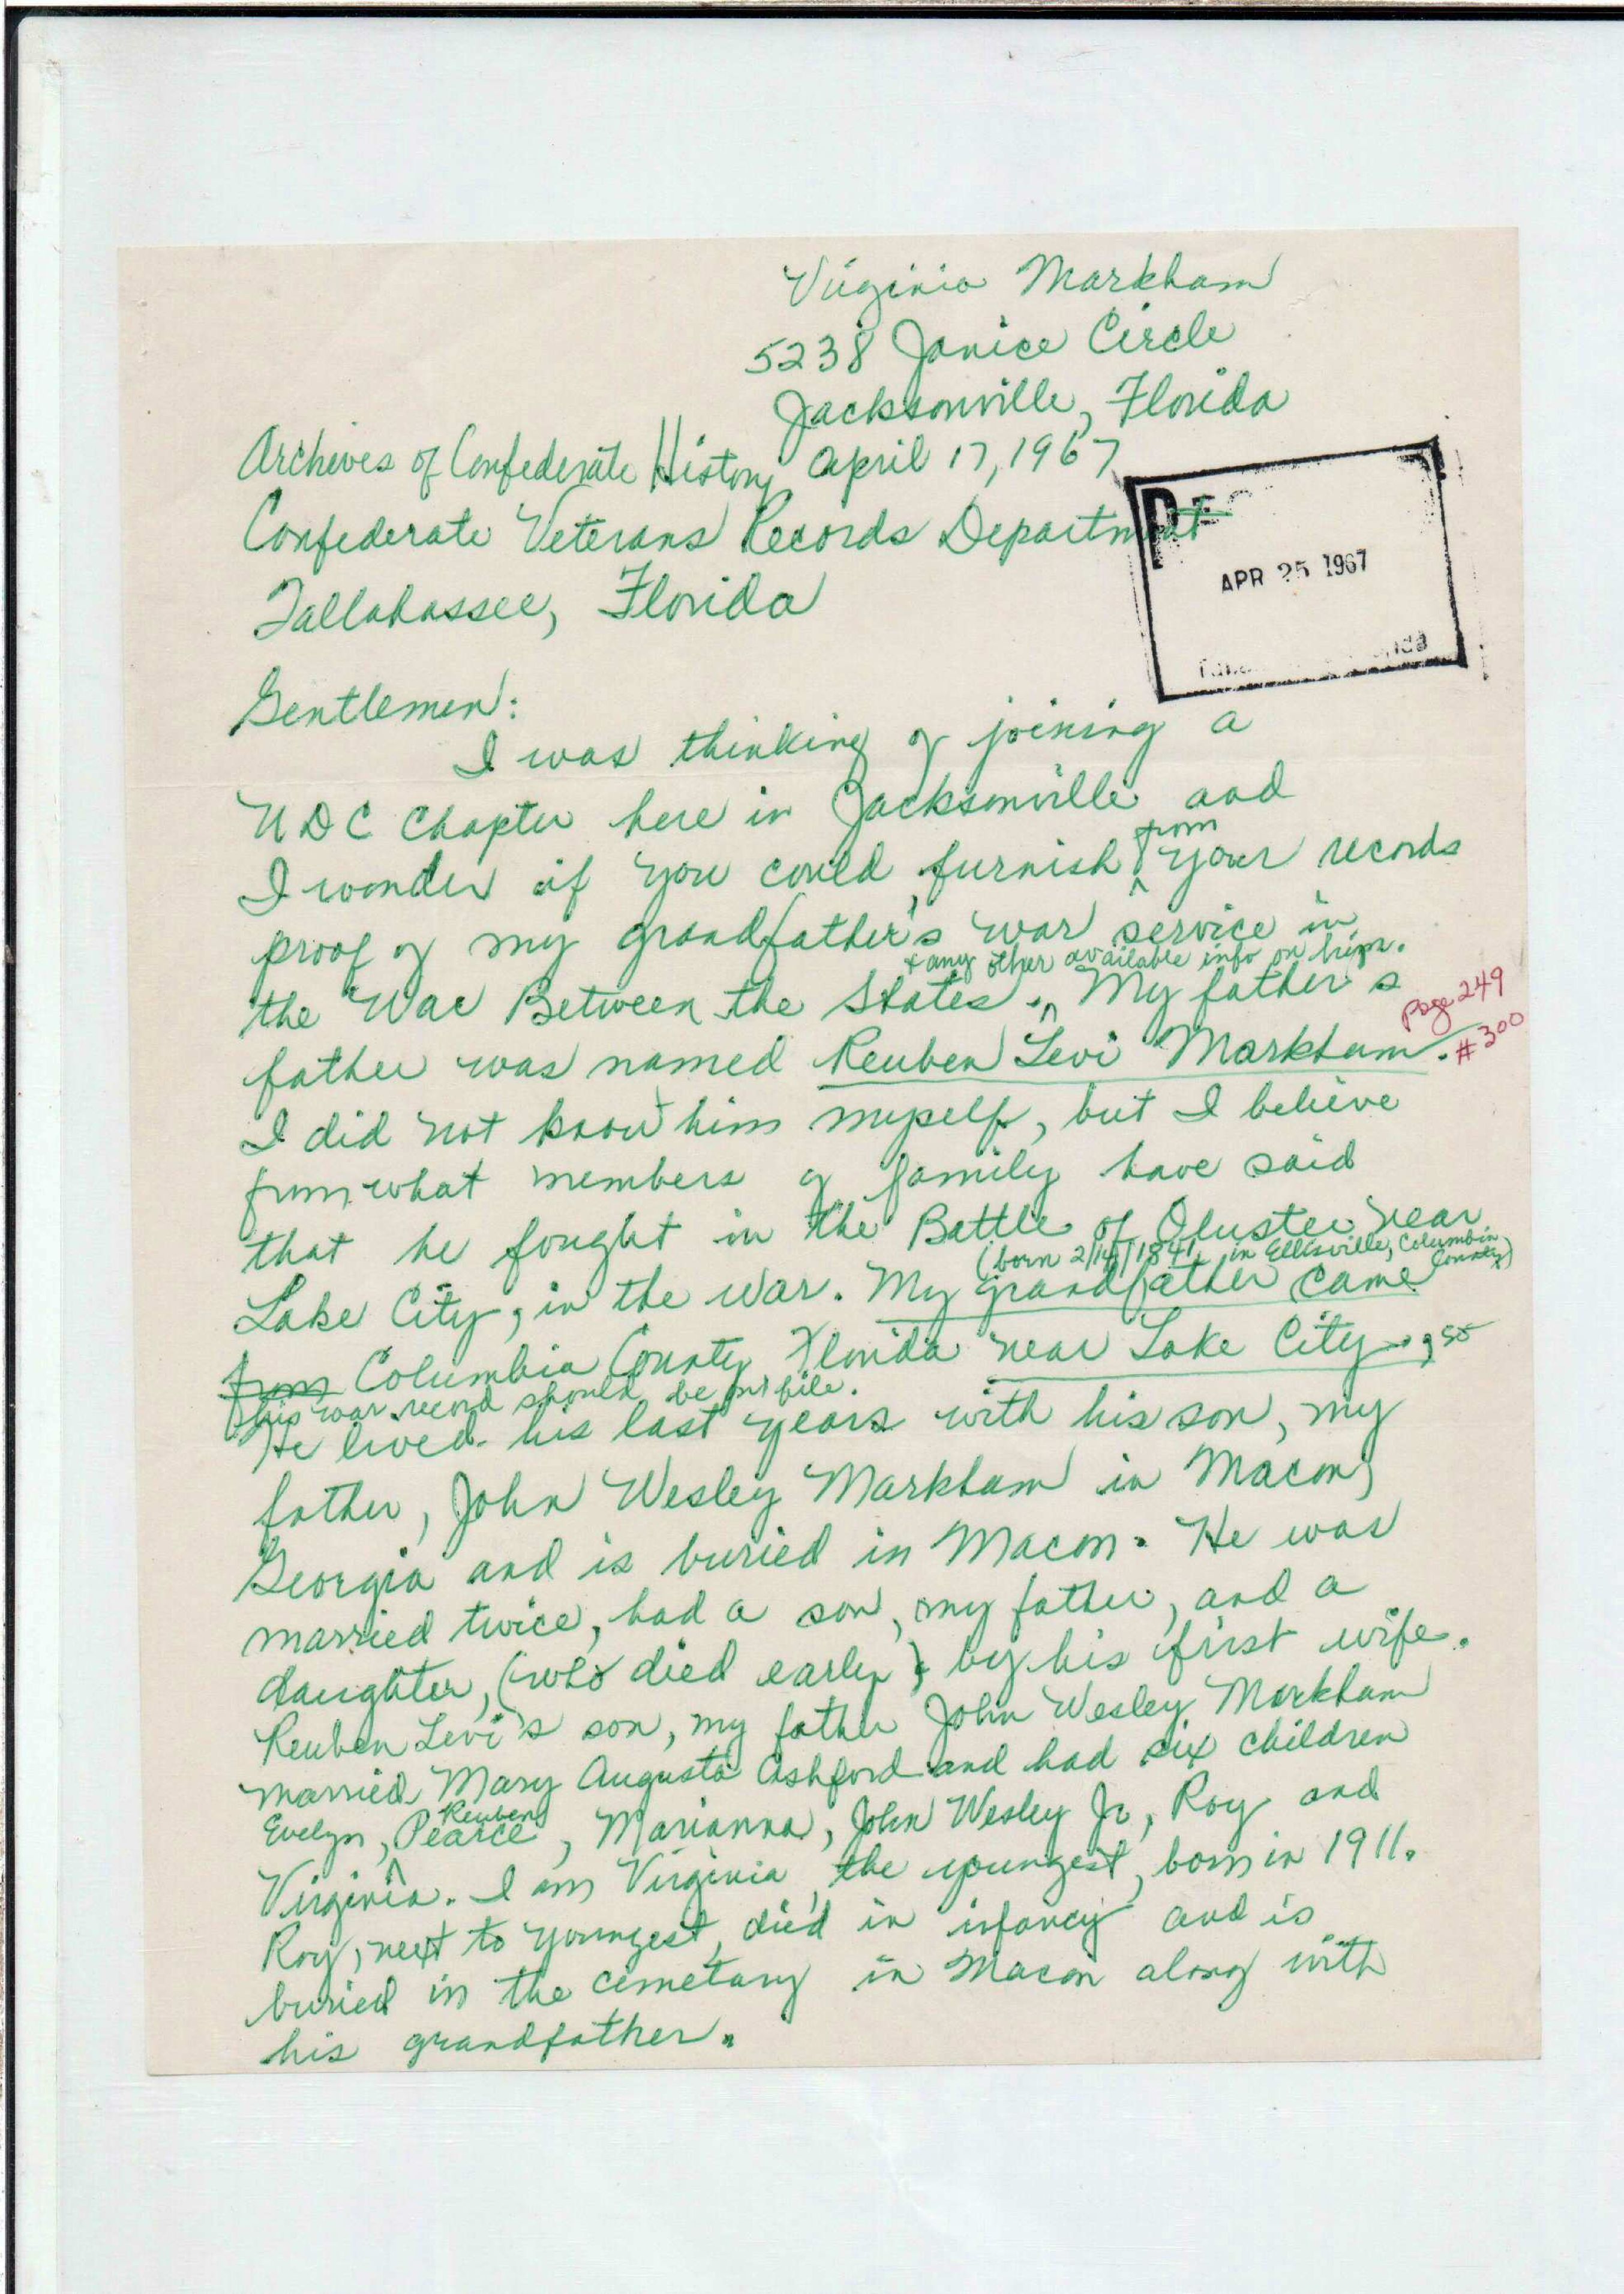 Virginia Markham
5238 Janice Circle
Jacksonville, Florida
Archives of Confederate History April 17, 1967
Confederate Veterans Records Department
Tallahassee, Florida
APR 25 1967
Gentlemen:
I was thinking of joining a
UDC Chapter here in Jacksonville and
from
I wonder if you could furnish ^ your records
proof of my grandfather's war service in
+ any other available info on him.
the War Between the States. ^ My father's
Page 249
father was named Reuben Levi Markham.
#300
I did not know him myself, but I believe
from what members of family have said
that he fought in the Battle of Olustee near
(born 2/14/1841 in Ellisville, Columbia County)
Lake City, in the war. My grandfather came
from Columbia County Florida near Lake City, so
his war record should be on file.
He lived his last years with his son, my
father, John Wesley Markham in Macon,
Georgia and is buried in Macon. He was
married twice, had a son, my father, and a
daughter, (who died early) by his first wife.
Reuben Levi's son, my father John Wesley Markham
married Mary Augusta Ashford and had six children
Reuben
Evelyn, ^ Pearce, Marianna, John Wesley Jr, Roy and
Virginia. I am Virginia, the youngest, born in 1911.
Roy, next to youngest, died in infancy and is
buried in the cemetary in Macon along with
his grandfather.